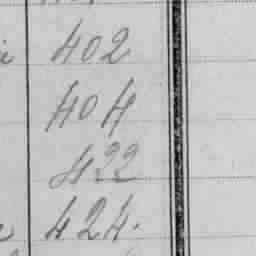 402
404
422
424.